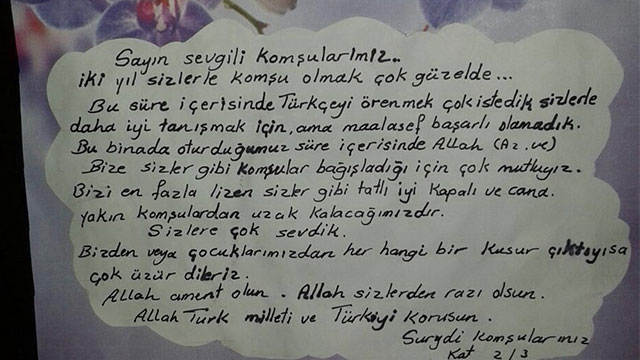 Sayın sevgili komşularımız..
iki yıl sizlerle komşu olmak çok güzelde...
Bu süre içerisinde Türkçeyi örenmek çok istedik sizlerle
daha iyi tanışmak için, ama maalasef başarlı olamadık.
Bu binada oturduğumuz süre içerisinde Allah (Az. ve)
Bize sizler gibi komşular bağışladığı için çok mutluyız.
Bizi en fazla üzen sizler gibi tatlı iyi kapalı ve cana.
yakın komşulardan uzak kalacağımızdır.
Sizlere çok sevdik.
Bizden veya çocuklarımızdan her hangi bir kusur çıktıyısa
çok üzür dileriz.
Allah ament olun. Allah sizlerden razı olsun.
Allah Türk milleti ve Türkiyi korusun.
Suriydi komşularınız
Kat 2/3